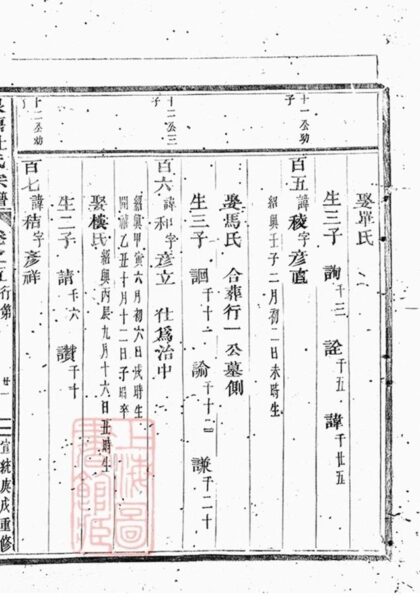 娶單氏
生三子 詢千三 詮千五 諱千廿五
十一公幼子
百五 諱稜字彥直
紹興壬子二月初一日未時生
娶馬氏 合葬行一公墓側
生三子 千十一 諭千十二 謙千二十
十二公三子
百六 諱和字彥立 仕爲治中
紹興甲寅六月初六日戌時生
開禧乙丑十月十二日子時卒
娶樓氏 紹興丙辰九月十六日丑時生
生二子 請千六 讚千十
十二公幼子
百七 諱秸字彥祥
杜氏宗譜 卷之五 行第 廿一 宣統庚戌重修
上海圖書館藏